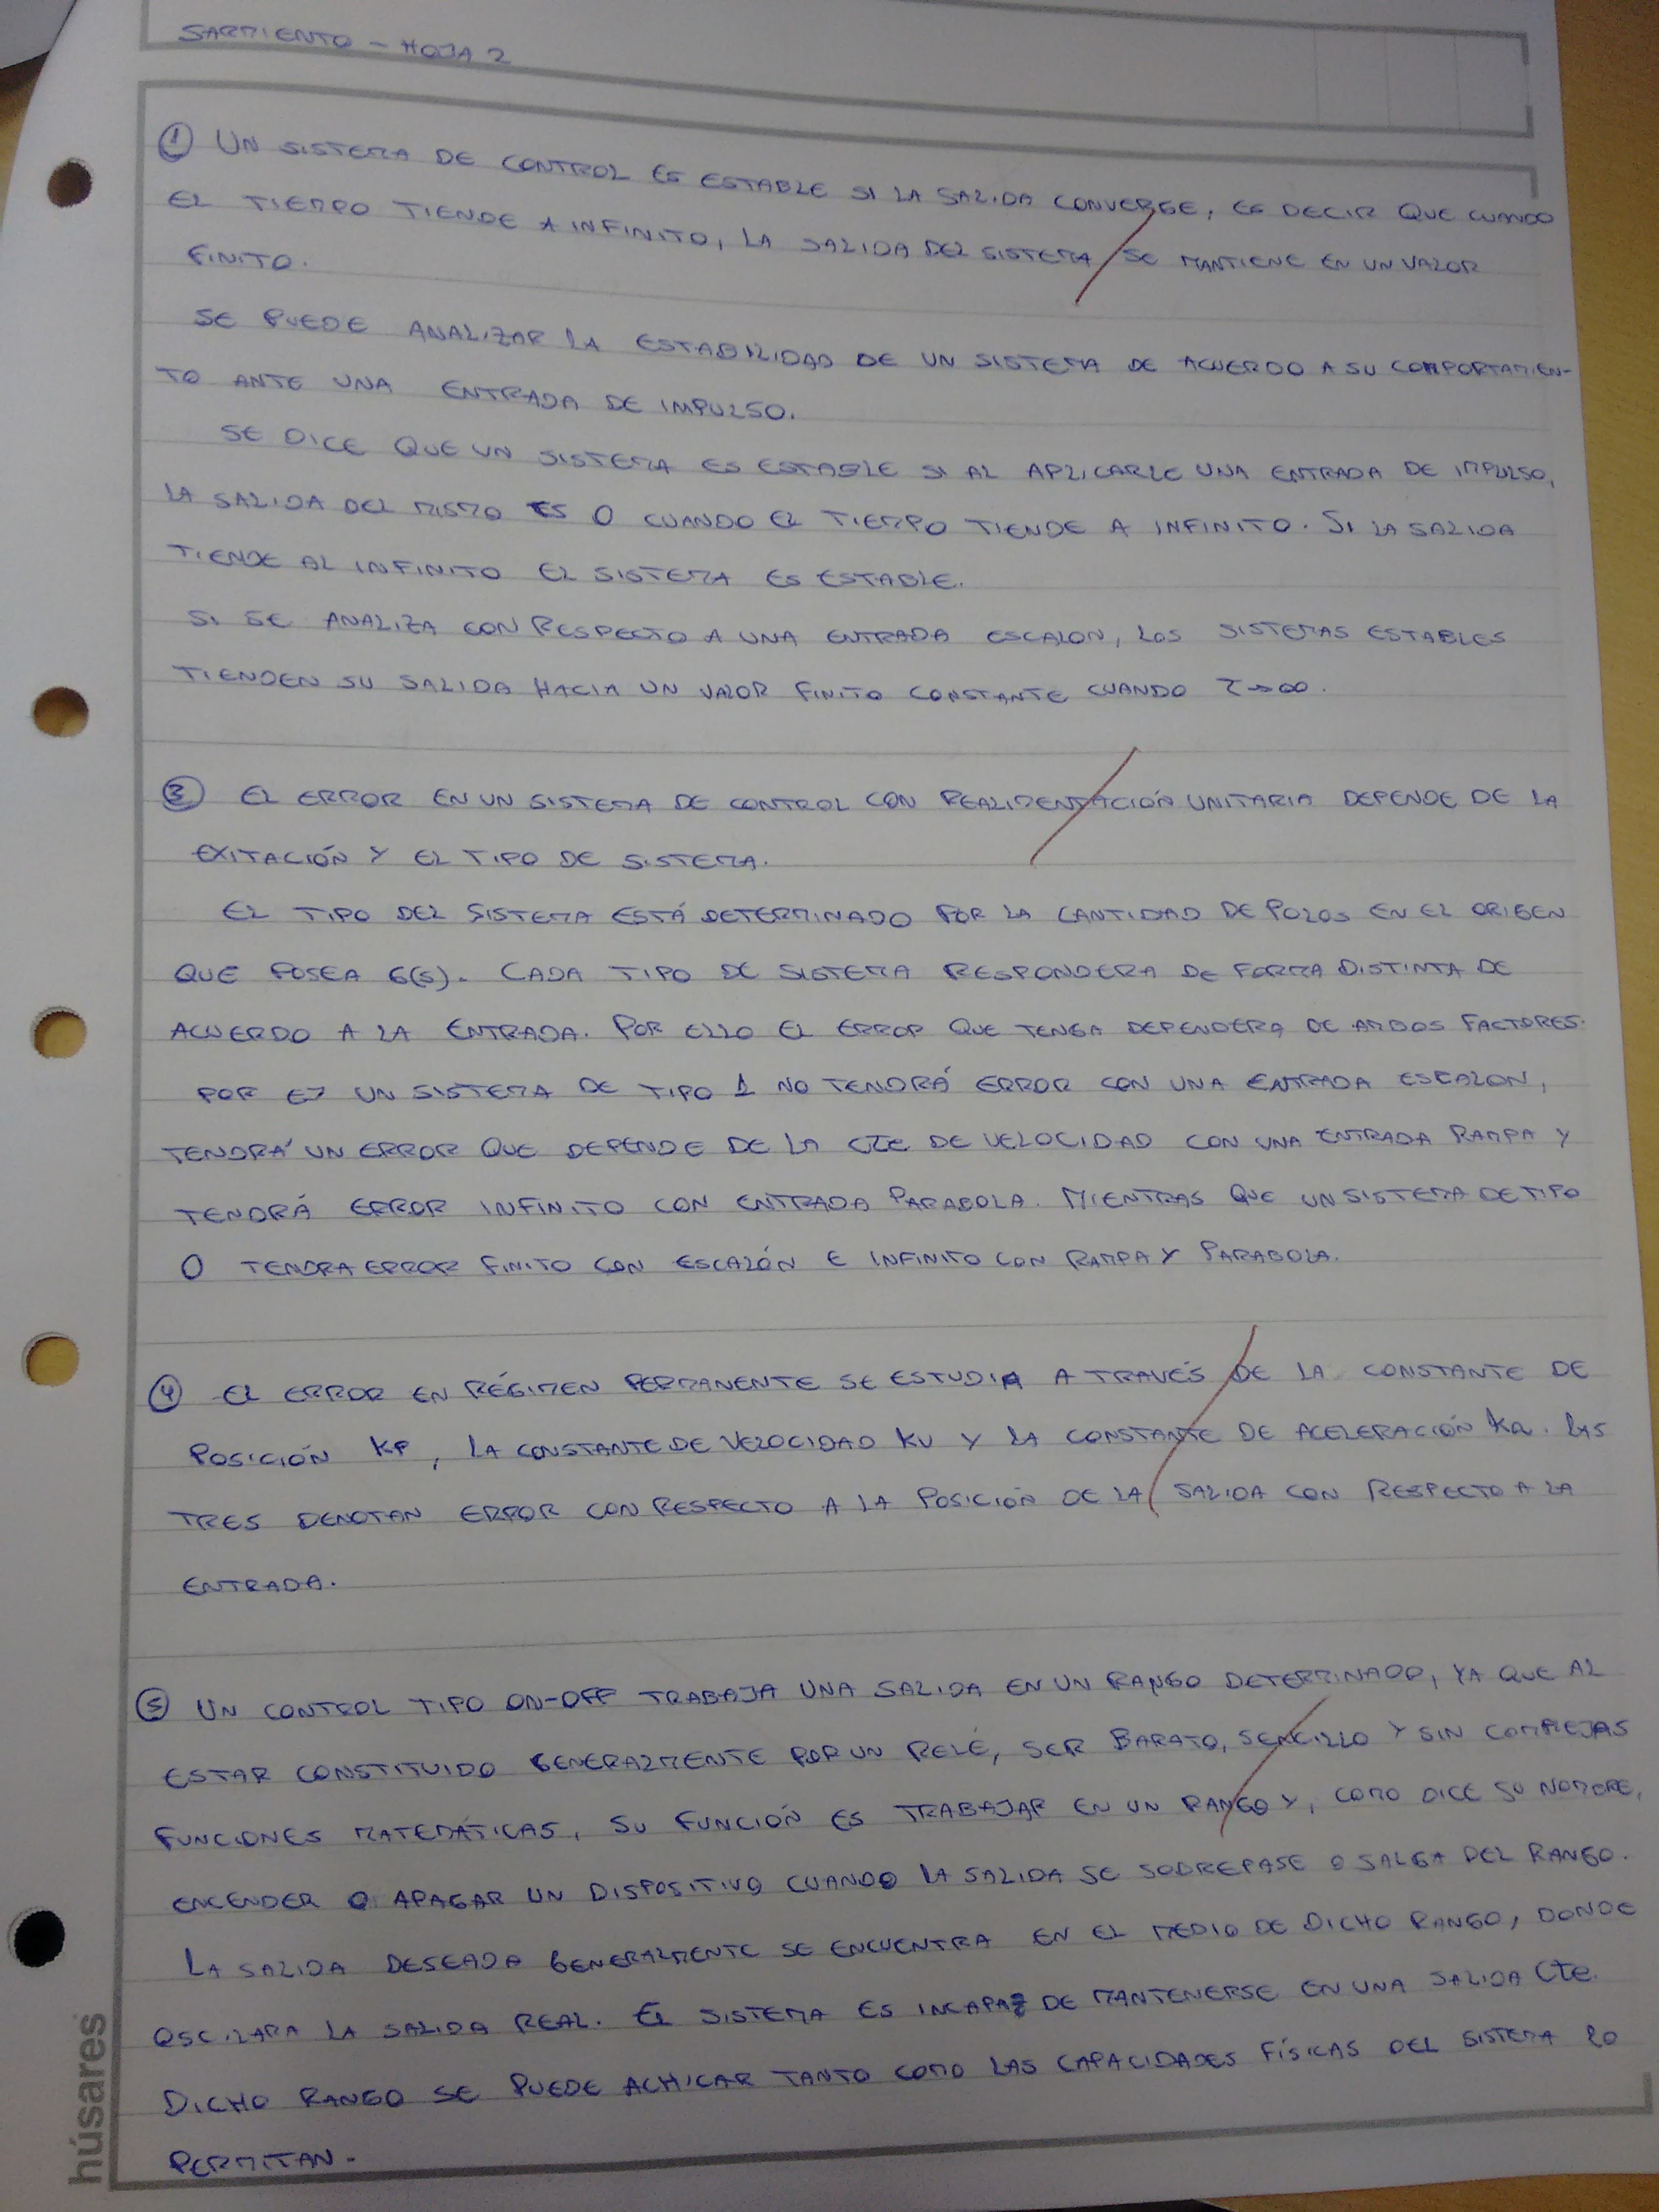 SARMIENTO - HOJA 2
① UN SISTEMA DE CONTROL ES ESTABLE SI LA SALIDA CONVERGE, ES DECIR QUE CUANDO
EL TIEMPO TIENDE A INFINITO, LA SALIDA DEL SISTEMA SE MANTIENE EN UN VALOR
FINITO.
SE PUEDE ANALIZAR LA ESTABILIDAD DE UN SISTEMA DE ACUERDO A SU COMPORTAMIEN-
TO ANTE UNA ENTRADA DE IMPULSO.
SE DICE QUE UN SISTEMA ES ESTABLE SI AL APLICARLE UNA ENTRADA DE IMPULSO,
LA SALIDA DEL MISMO ES 0 CUANDO EL TIEMPO TIENDE A INFINITO. SI LA SALIDA
TIENDE AL INFINITO EL SISTEMA ES ESTABLE.
SI SE ANALIZA CON RESPECTO A UNA ENTRADA ESCALON, LOS SISTEMAS ESTABLES
TIENDEN SU SALIDA HACIA UN VALOR FINITO CONSTANTE CUANDO T→∞.
③ EL ERROR EN UN SISTEMA DE CONTROL CON REALIMENTACIÓN UNITARIA DEPENDE DE LA
EXITACIÓN Y EL TIPO DE SISTEMA.
EL TIPO DEL SISTEMA ESTÁ DETERMINADO POR LA CANTIDAD DE POLOS EN EL ORIGEN
QUE POSEA G(s). CADA TIPO DE SISTEMA RESPONDERA DE FORMA DISTINTA DE
ACUERDO A LA ENTRADA. POR ELLO EL ERROR QUE TENGA DEPENDERA DE AMBOS FACTORES.
POR EJ UN SISTEMA DE TIPO 1 NO TENDRÁ ERROR CON UNA ENTRADA ESCALON,
TENDRÁ UN ERROR QUE DEPENDE DE LA CTE DE VELOCIDAD CON UNA ENTRADA RAMPA Y
TENDRÁ ERROR INFINITO CON ENTRADA PARABOLA. MIENTRAS QUE UN SISTEMA DE TIPO
0 TENDRA ERROR FINITO CON ESCALÓN E INFINITO CON RAMPA Y PARABOLA.
④ EL ERROR EN RÉGIMEN PERMANENTE SE ESTUDIA A TRAVÉS DE LA CONSTANTE DE
POSICIÓN KP, LA CONSTANTE DE VELOCIDAD KV Y LA CONSTANTE DE ACELERACIÓN Ka. LAS
TRES DENOTAN ERROR CON RESPECTO A LA POSICIÓN DE LA SALIDA CON RESPECTO A LA
ENTRADA.
⑤ UN CONTROL TIPO ON-OFF TRABAJA UNA SALIDA EN UN RANGO DETERMINADO, YA QUE AL
ESTAR CONSTITUIDO GENERALMENTE POR UN RELÉ, SER BARATO, SENCILLO Y SIN COMPLEJAS
FUNCIONES MATEMÁTICAS, SU FUNCIÓN ES TRABAJAR EN UN RANGO Y, COMO DICE SU NOMBRE,
ENCENDER O APAGAR UN DISPOSITIVO CUANDO LA SALIDA SE SOBREPASE O SALGA DEL RANGO.
LA SALIDA DESEADA GENERALMENTE SE ENCUENTRA EN EL MEDIO DE DICHO RANGO, DONDE
OSCILARA LA SALIDA REAL. EL SISTEMA ES INCAPAZ DE MANTENERSE EN UNA SALIDA Cte.
DICHO RANGO SE PUEDE ACHICAR TANTO COMO LAS CAPACIDADES FÍSICAS DEL SISTEMA LO
PERMITAN.
húsares